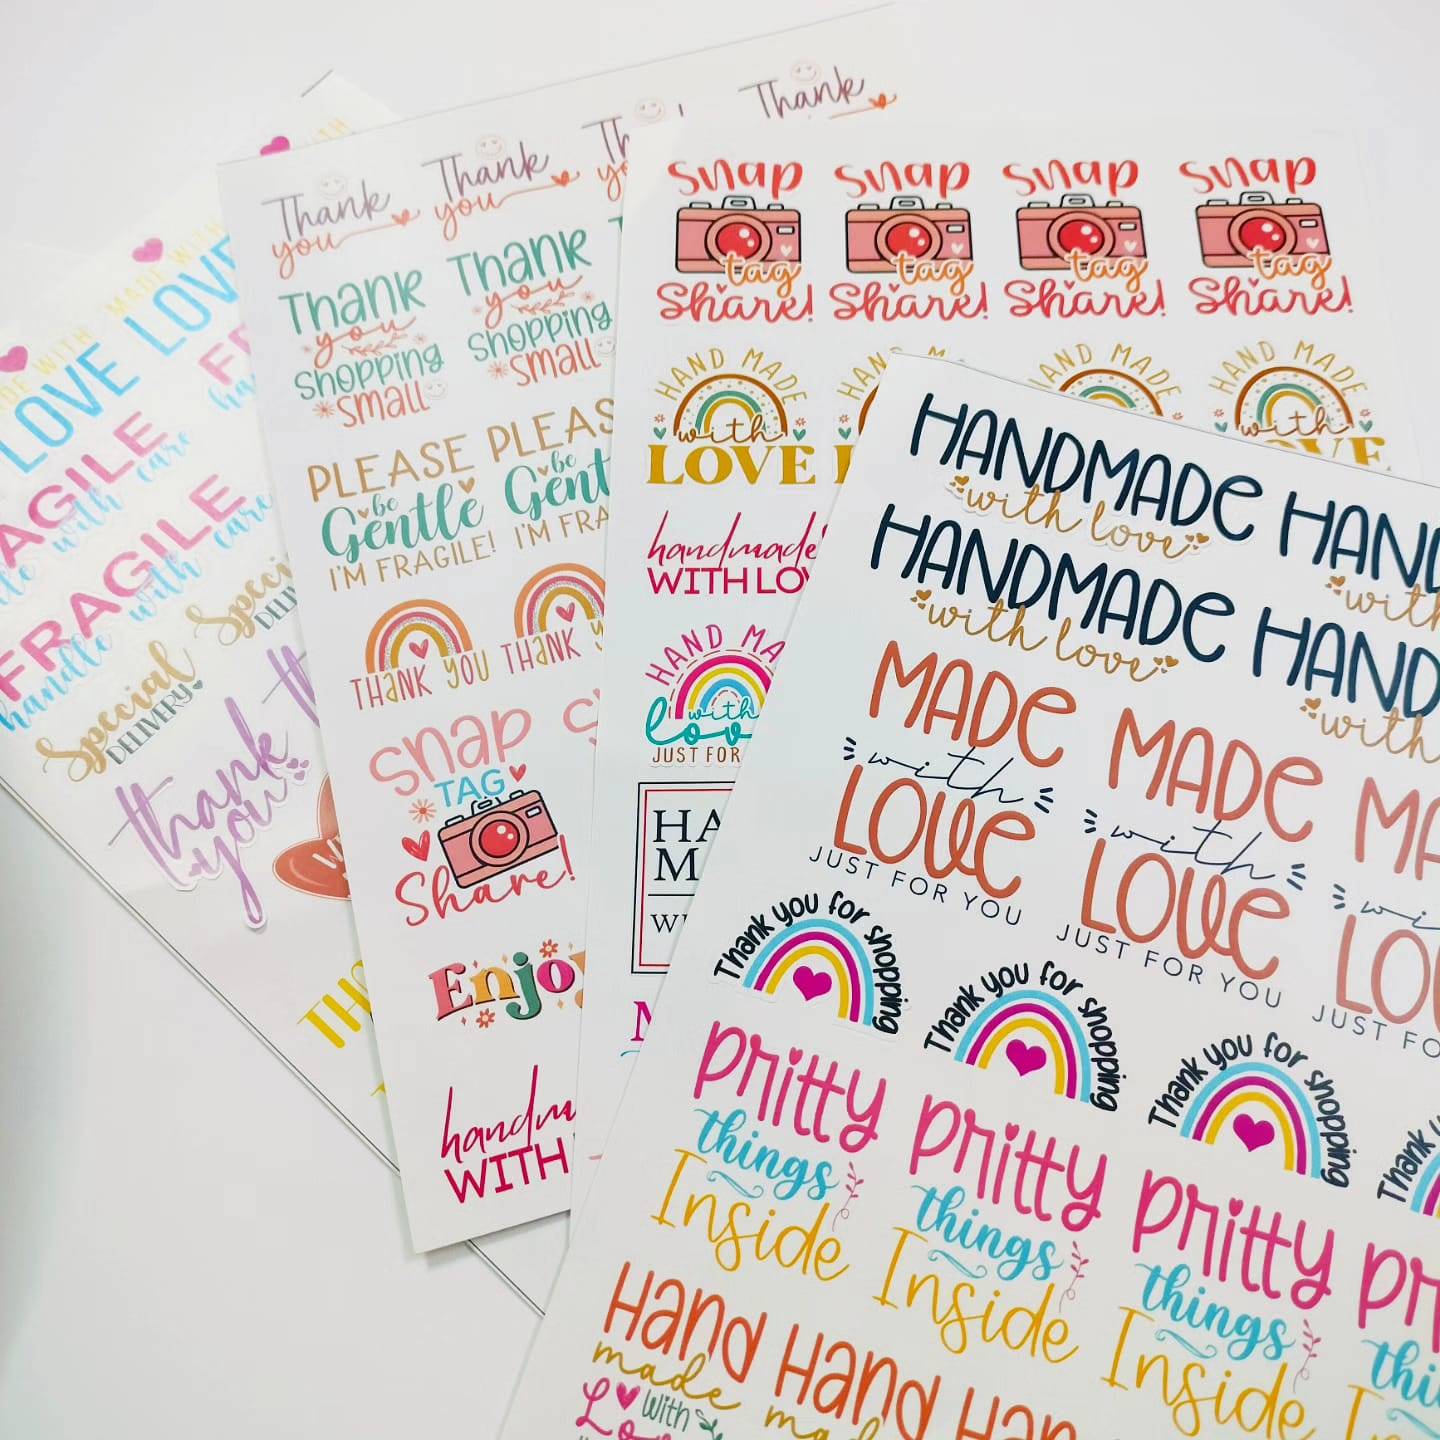 MADE WITH
LOVE
MADE WITH
LOVE
FRAGILE
handle with care
Special
DELIVERY
Special
thank
you
Thank
you
Thank
you
Thank
Thank
you
shopping
small
Thank
you
shopping
small
PLEASE
be
Gentle
I'M FRAGILE!
PLEAS
be
Gent
I'M FRA
THANK YOU
THANK Y
snap
TAG
Share!
Enjo
handm
WITH
snap
tag
Share!
snap
tag
Share!
snap
tag
Share!
snap
tag
Share!
HAND MADE
with
LOVE
HAND MADE
with
LOVE
handmade
WITH LOV
HAND MA
with
lov
JUST FOR
HA
M
HANDMADE
with love
HAND
with
HANDMADE
with love
HAND
with
MADE
with
LOVE
JUST FOR YOU
MADE
with
LOVE
JUST FOR YOU
MA
wi
LO
JUST FO
Thank you for shopping
Thank you for shopping
Thank you for shopping
Thank
pritty
things
Inside
pritty
things
Inside
pritty
things
Inside
pr
thi
I
Hand
made
with
Lov
Hand
ma
Han